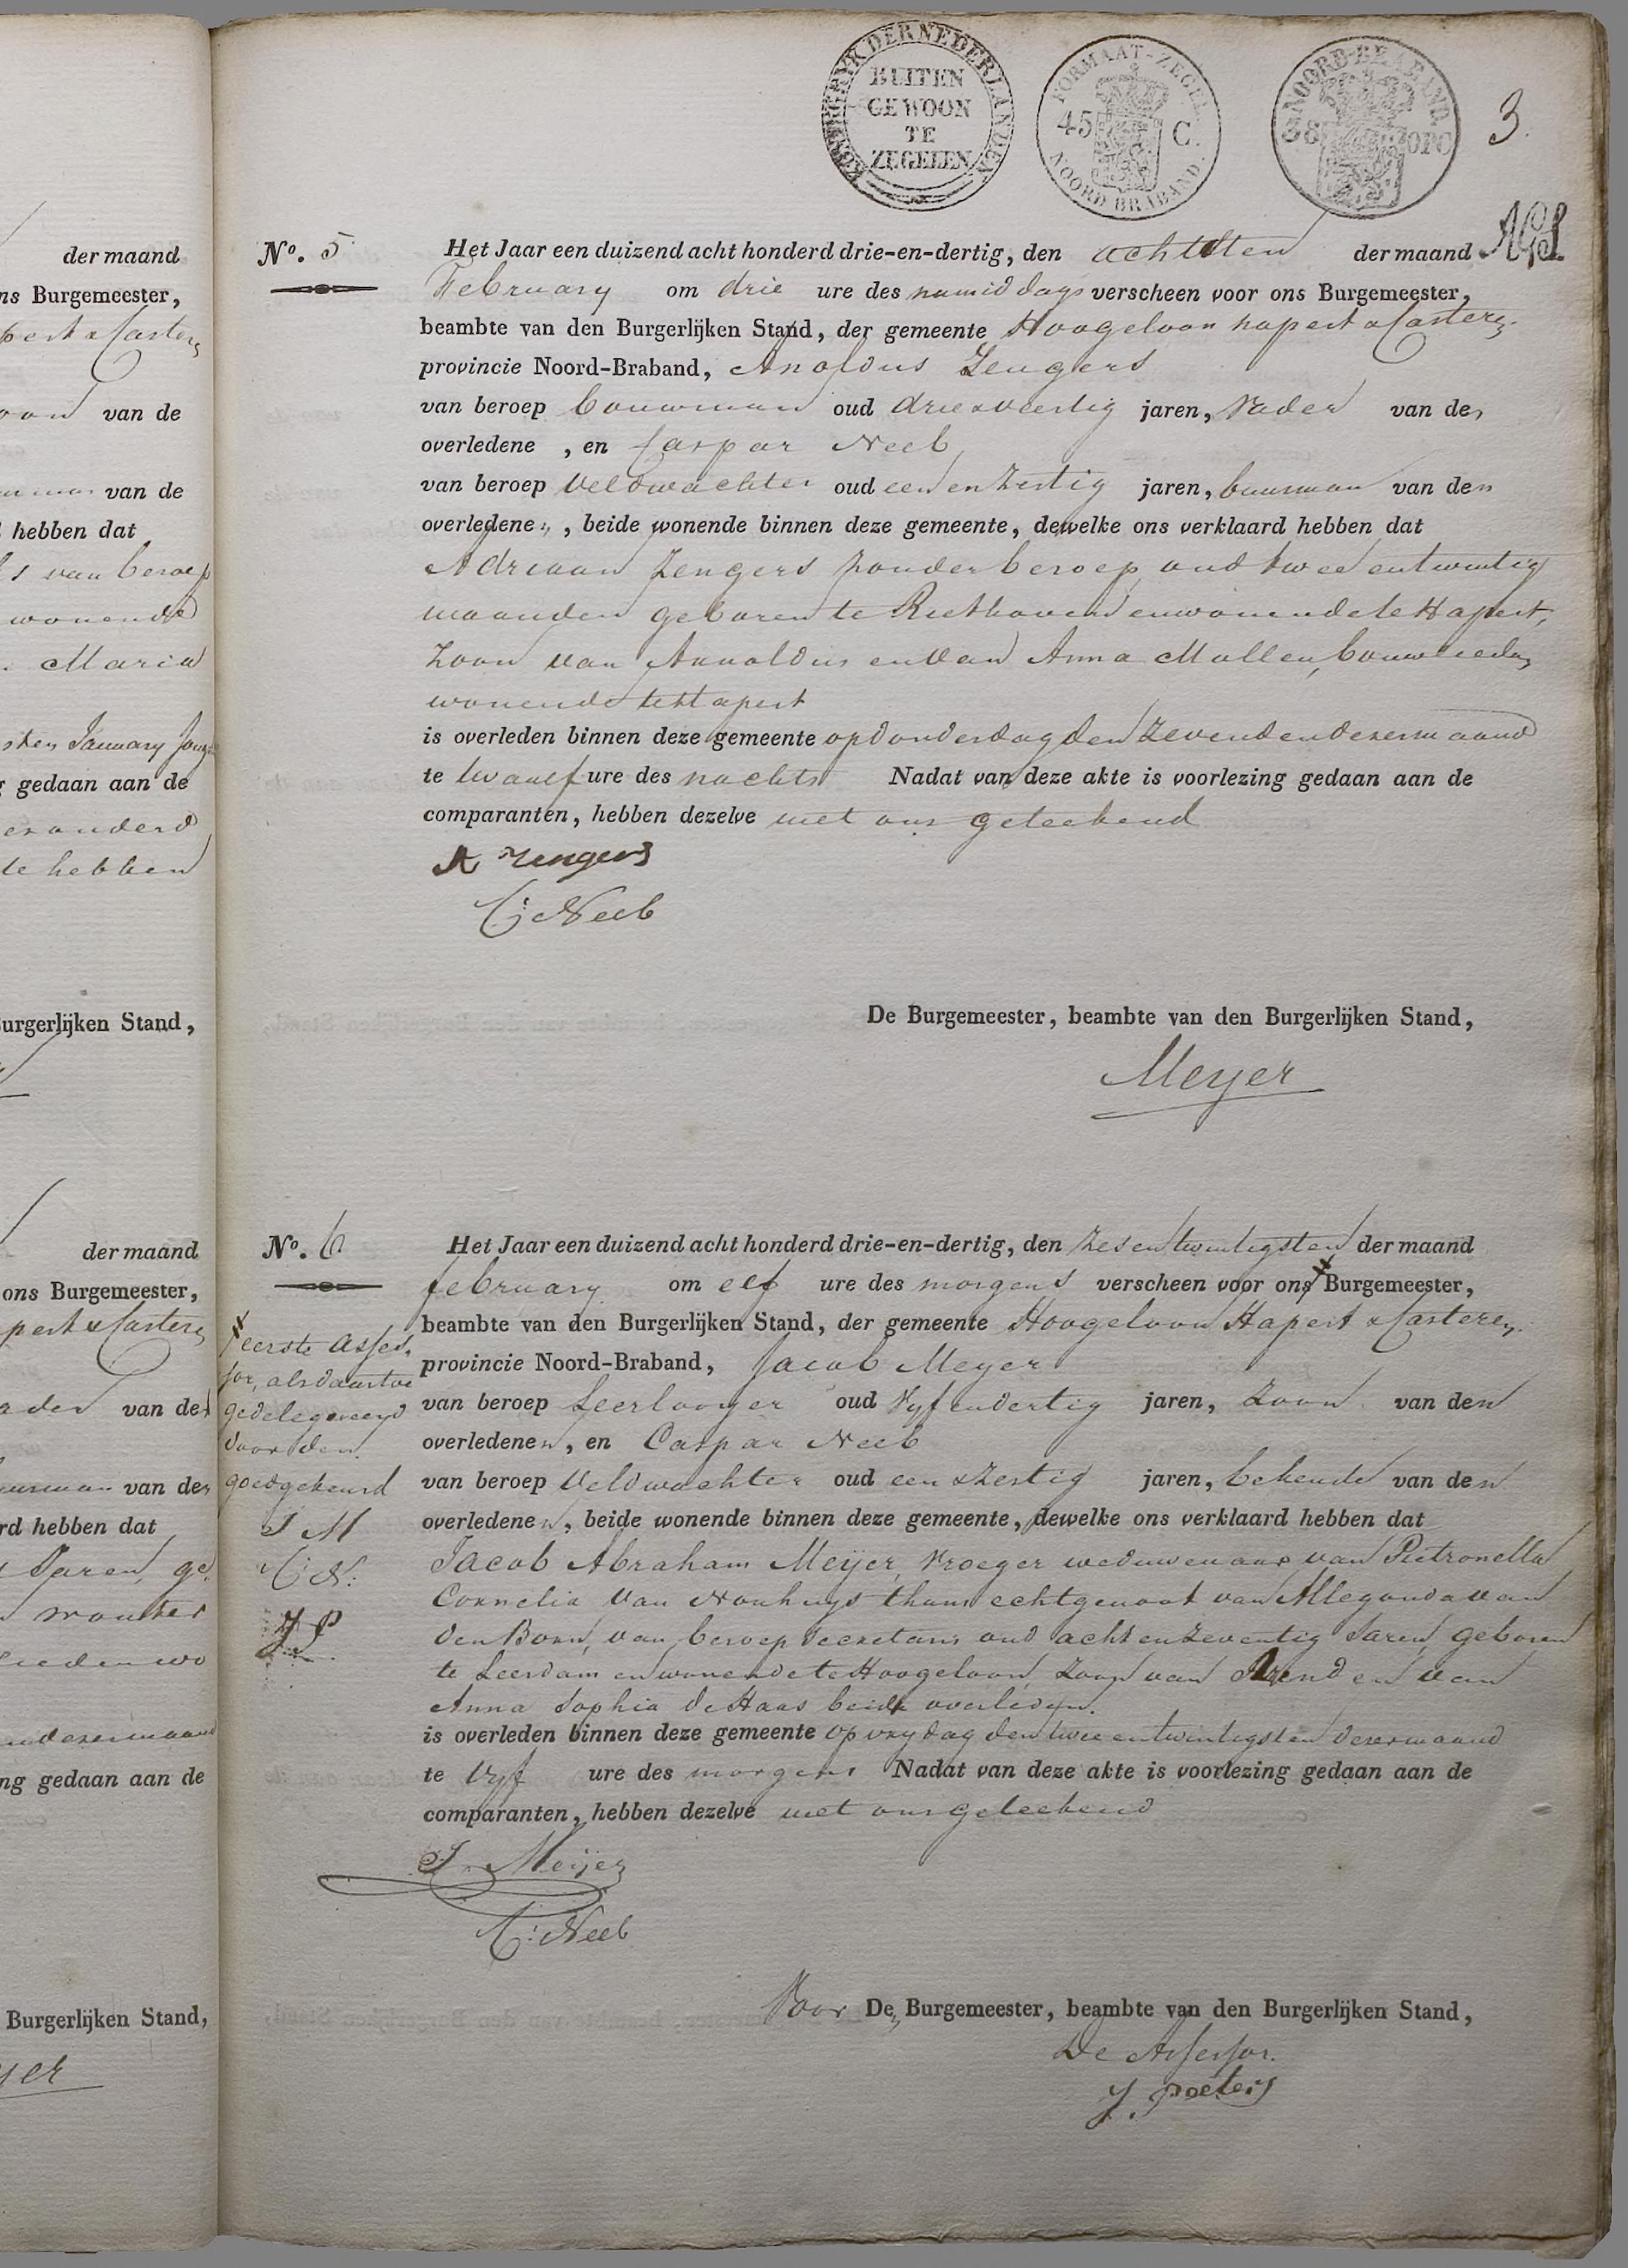 der maand
ns Burgemeester,
van de
van de
hebben dat
van beroep
wonende
Maria
January
gedaan aan de
te hebben
urgerlijken Stand,
der maand
ons Burgemeester,
van de
van de
rd hebben dat
Jaren, ge
ng gedaan aan de
Burgerlijken Stand,
KONINGRYK DER NEDERLANDEN
BUITEN
GEWOON
TE
ZEGELEN
FORMAAT-ZEGEL
45 C.
NOORD BRABAND.
NOORD-BRABAND
38 OPC
3.
No. 5 Het Jaar een duizend acht honderd drie-en-dertig, den achtsten der maand
February om drie ure des namiddags verscheen voor ons Burgemeester,
beambte van den Burgerlijken Stand, der gemeente Hoogeloon hapert & Casteren
provincie Noord-Braband, Anoldus Zengers
van beroep bouwman oud drie & veertig jaren, vader van den
overledene , en Caspar Neeb
van beroep Veldwachter oud een en zestig jaren, buurman van den
overledenen, beide wonende binnen deze gemeente, dewelke ons verklaard hebben dat
Adriaan Zengers zonder beroep oud twee en twintig
maanden geboren te Riethoven en wonende te Hapert,
zoon van Arnoldus en van Anna Mollen, bouwlieden
wonende te Hapert
is overleden binnen deze gemeente op donderdag den zevenden dezer maand
te twaalf ure des nachts Nadat van deze akte is voorlezing gedaan aan de
comparanten, hebben dezelve met ons geteekend
A Zengers
C: Neeb
De Burgemeester, beambte van den Burgerlijken Stand,
Meyer
No. 6 Het Jaar een duizend acht honderd drie-en-dertig, den zes en twintigsten der maand
february om elf ure des morgens verscheen voor ons Burgemeester,
beambte van den Burgerlijken Stand, der gemeente Hoogeloon Hapert & Casteren
provincie Noord-Braband, Jacob Meyer
van beroep Leerlooyer oud vyf en dertig jaren, zoon van den
overledenen, en Caspar Neeb
van beroep Veldwachter oud een & zestig jaren, bekende van den
overledenen, beide wonende binnen deze gemeente, dewelke ons verklaard hebben dat
Jacob Abraham Meijer, vroeger weduwenaar van Pietronella
Cornelia van Nouhuys thans echtgenoot van Allegonda van
den Born, van beroep secretaris oud acht en zeventig Jaren, geboren
te Leerdam en wonende te Hoogeloon, zoon van Arend en van
Anna Sophia de Haas beide overleden.
is overleden binnen deze gemeente op vrydag den twee en twintigsten dezer maand
te vyf ure des morgens Nadat van deze akte is voorlezing gedaan aan de
comparanten, hebben dezelve met ons geteekend
eerste asses
sor, als daartoe
gedelegeneerd
door den
goedgekeurd
J M
C: N:
J P
J. Meijer
C: Neeb
Voor Den Burgemeester, beambte van den Burgerlijken Stand,
De Assessor.
J. Peeters